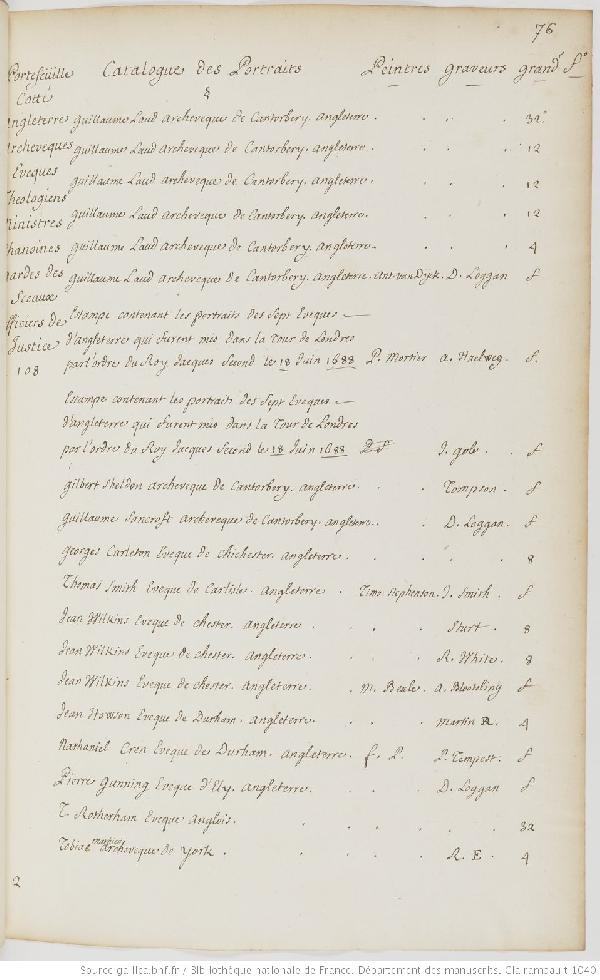 76
Portefeüille Catalogue des Portraits Peintres Graveurs grand.r f.o
Cotté &
Angleterre Guillaume Laud Archeveque de Cantorbery. Angleterre. 32.o
Archeveques Guillaume Laud Archeveque de Cantorbery. Angleterre. 12
Eveques Guillaume Laud Archeveque de Cantorbery. Angleterre. 12
Theologiens Guillaume Laud Archeveque de Cantorbery. Angleterre. 12
Ministres
Chanoines Guillaume Laud Archeveque de Cantorbery. Angleterre. 4
Gardes des Guillaume Laud Archeveque de Cantorbery. Angleterre. Ant. van Dyck. D. Loggan f
Sceaux
Officiers de Estampe contenant les portraits des Sept Eveques
Justice d'angleterre qui furent mis dans la Tour de Londres
108 par l'ordre du Roy Jacques Second le 18 Juin 1688 P. Mortier a. Haelweg. f.
Estampe contenant les portraits des Sept Eveques
d'angleterre qui furent mis dans la Tour de Londres
par l'ordre du Roy Jacques Second le 18 Juin 1688 J. gole. f
gilbert Sheldon Archeveque de Cantorbery. Angleterre. Tompson. f
Guillaume Sancroft Archeveque de Cantorbery. Angleterre. D. Loggan. f
Georges Carleton Eveque de Chichester. Angleterre. 8
Thomas Smith Eveque de Carlisle. Angleterre. Timo. Stephenson. J. Smith. f
Jean Wilkins Eveque de chester. Angleterre. Sturt. 8
Jean Wilkins Eveque de chester. Angleterre. R. White. 8
Jean Wilkins Eveque de chester. Angleterre. m. Beale. a. Blooteling f
Jean Howson Eveque de Durham. Angleterre. martin R. 4
Nathaniel Creu Eveque des Durham. Angleterre. f. P. P. Tempest. f
Pierre Gunning Eveque d'Ely. Angleterre. D. Loggan f
T. Rotherham Eveque Anglois. 32
Tobie matthieu Archeveque de York. R. E. 4
2
Source gallica.bnf.fr / Bibliothèque nationale de France. Département des manuscrits. Clairambault 1040